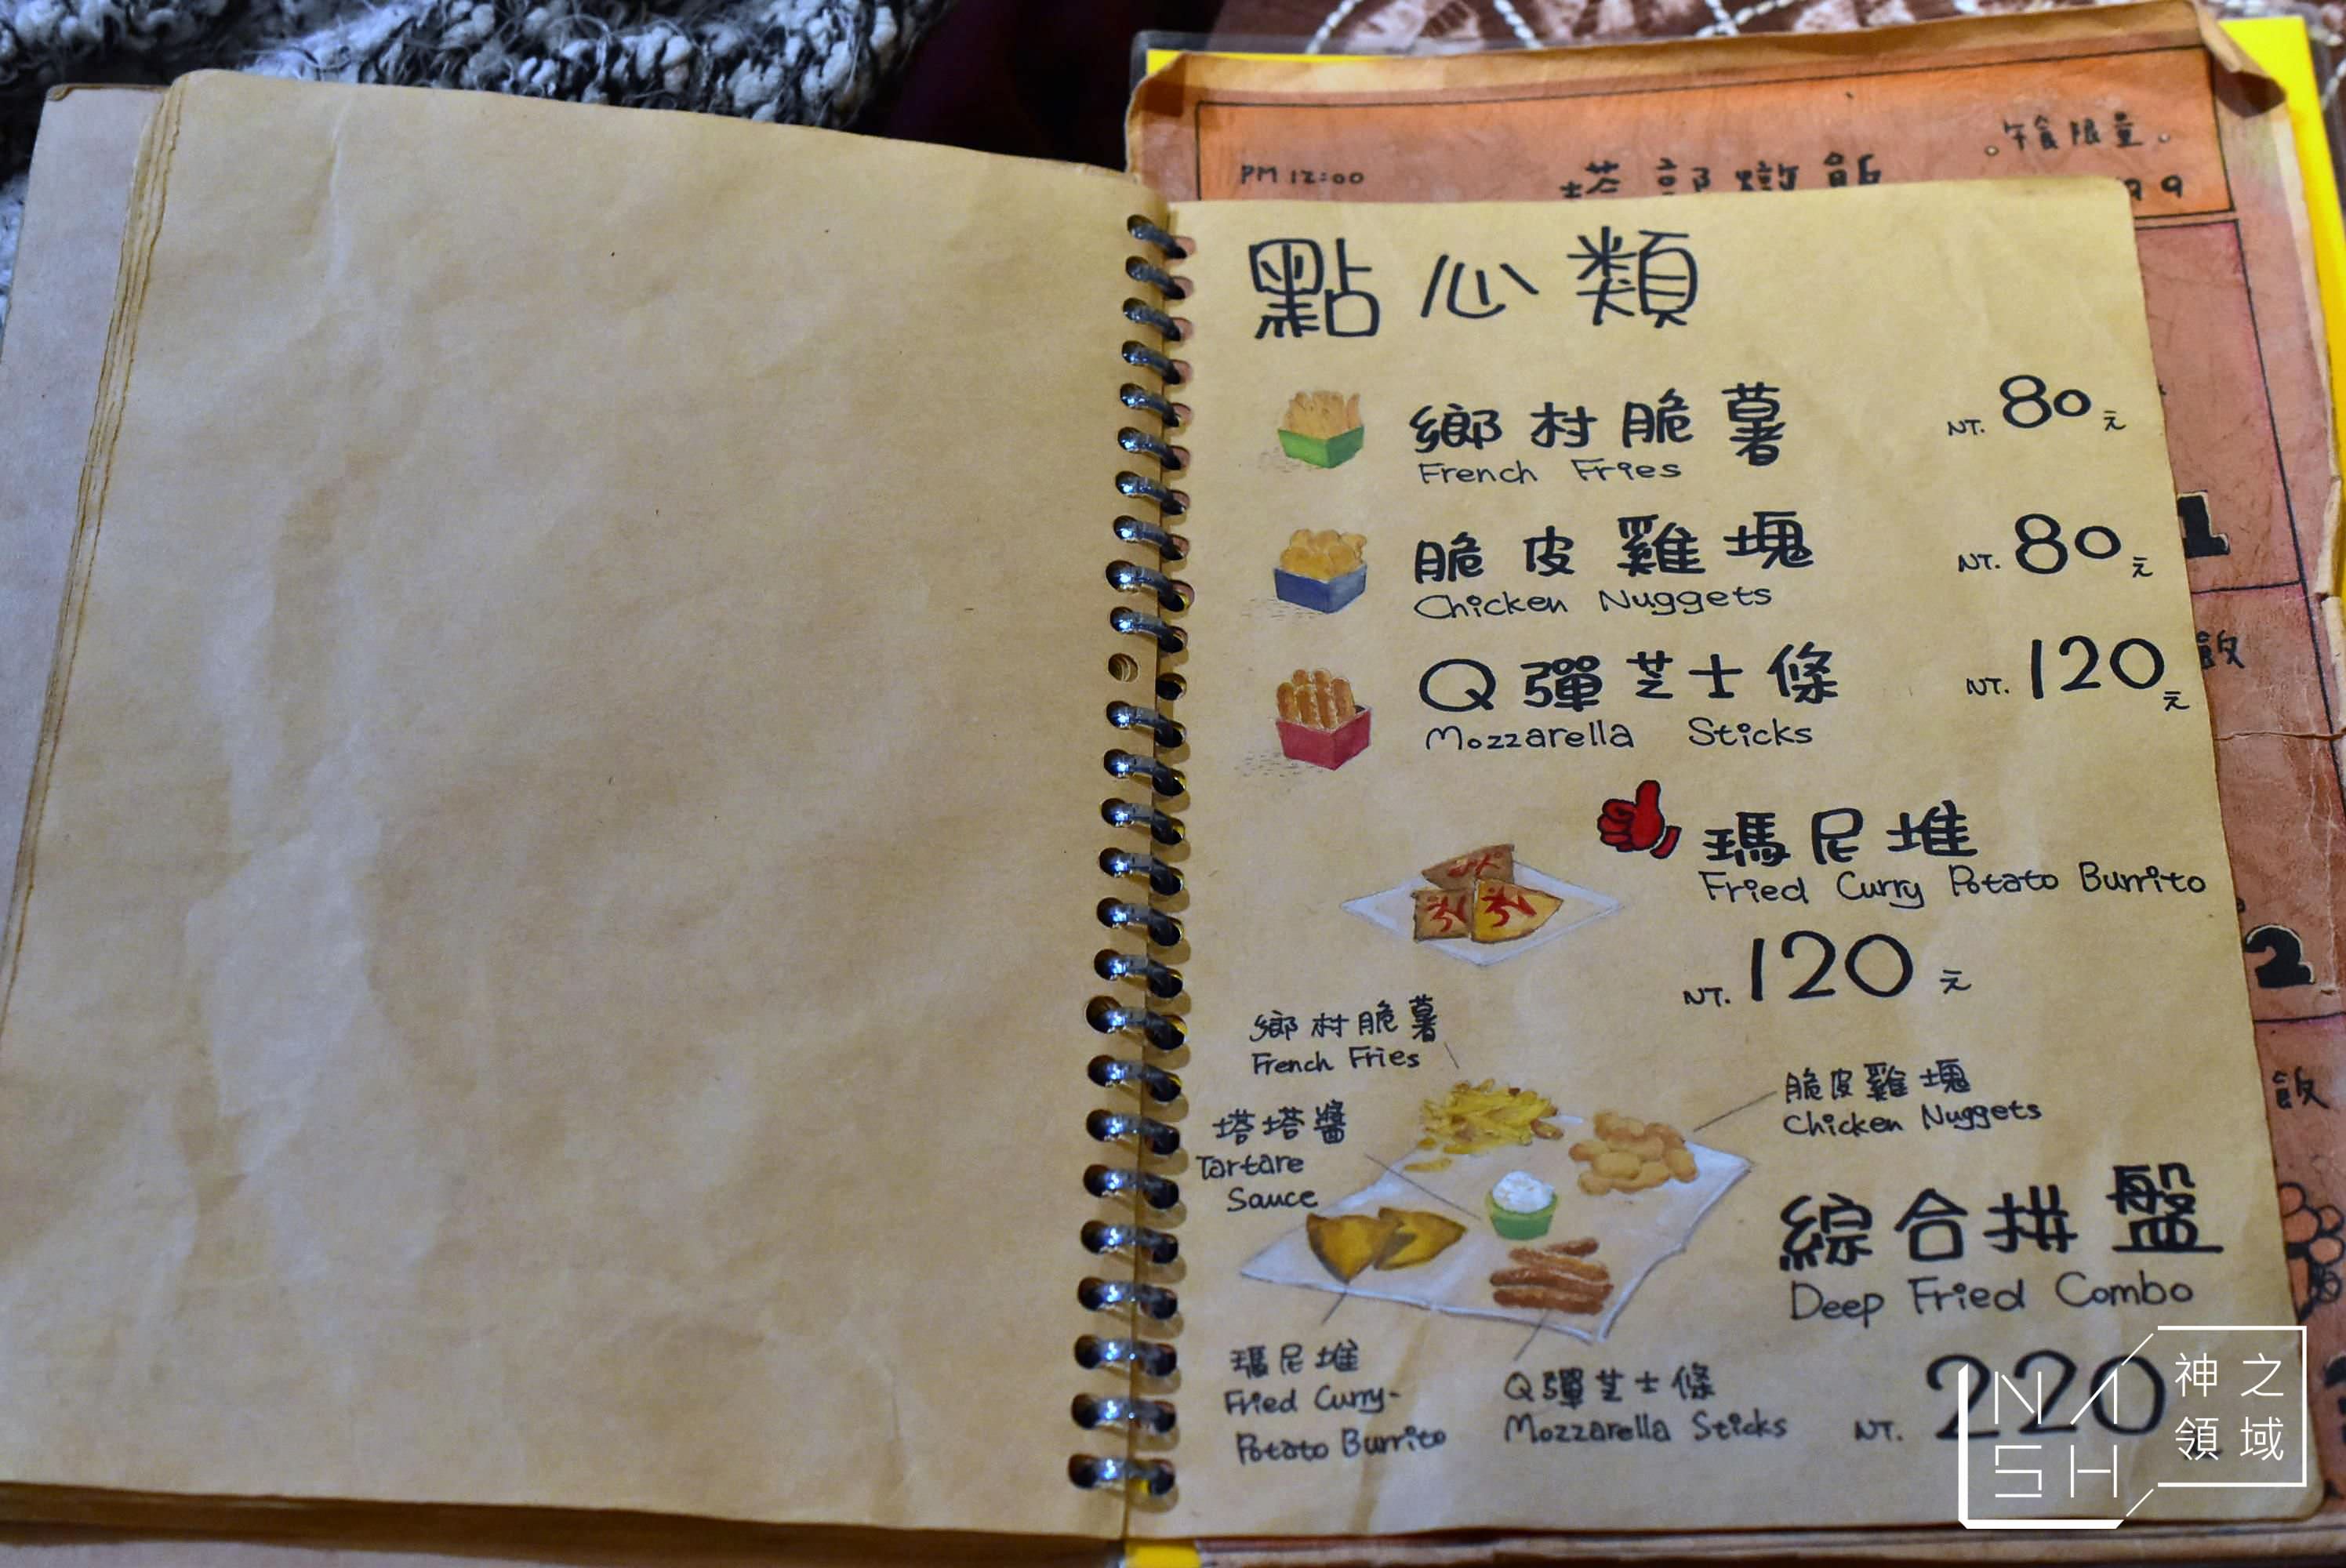 PM 12:00
午食限量
點心類
鄉村脆薯
French Fries
NT. 80元
脆皮雞塊
Chicken Nuggets
NT. 80元
Q彈芝士條
Mozzarella Sticks
NT. 120元
瑪尼堆
Fried Curry Potato Burrito
NT. 120元
鄉村脆薯
French Fries
脆皮雞塊
Chicken Nuggets
塔塔醬
Tartare
Sauce
綜合拼盤
Deep Fried Combo
瑪尼堆
Fried Curry-
Potato Burrito
Q彈芝士條
Mozzarella Sticks
NT. 220
NASH
神之
領域
飯
飯